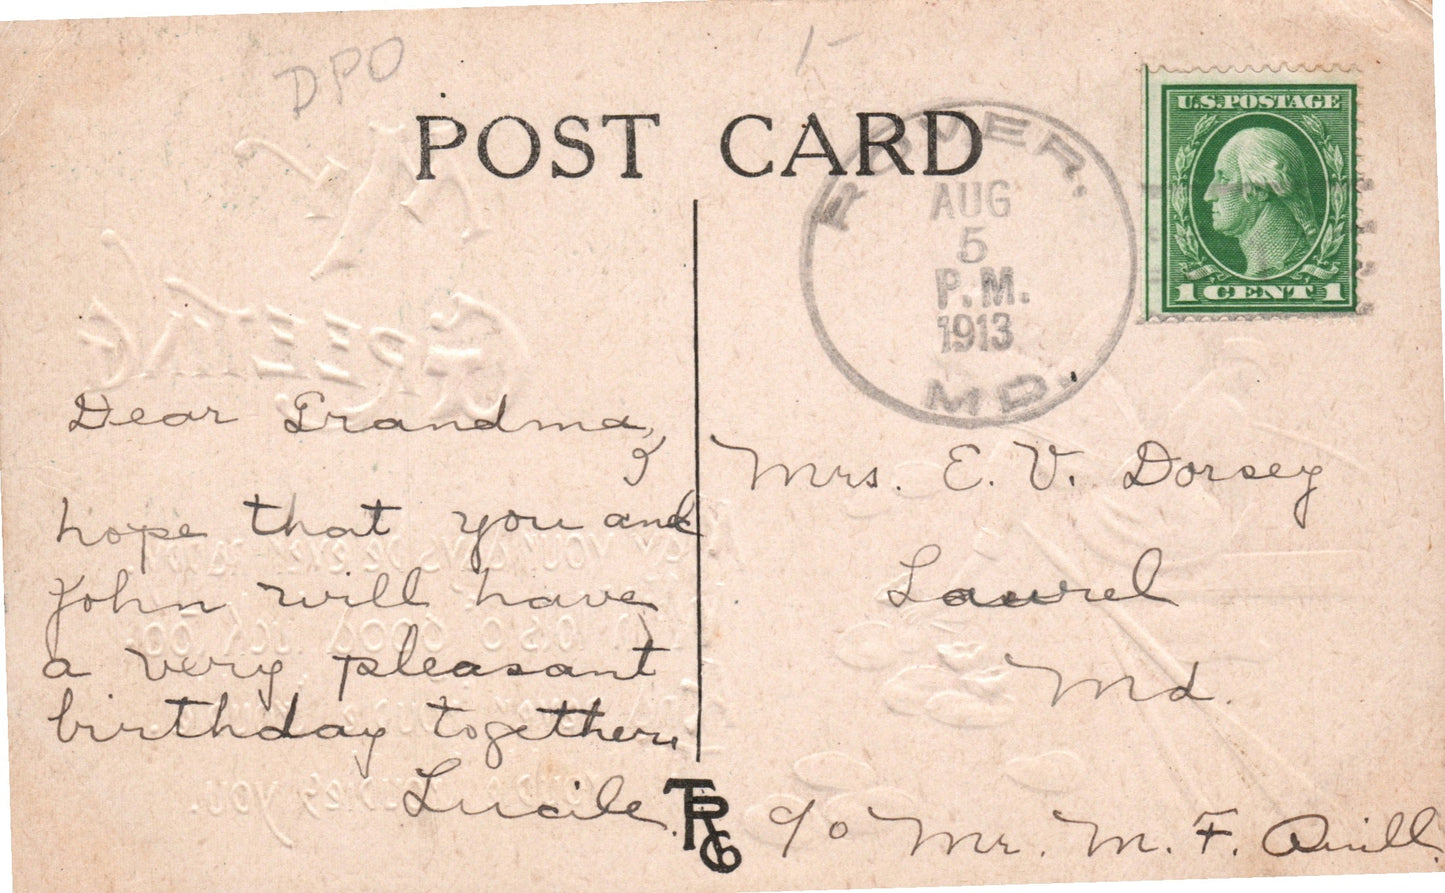 DPO
POST CARD
ROVER.
AUG
5
P.M.
1913
MD.
U.S. POSTAGE
1 CENT 1
Dear Grandma,
I
hope that you and
John will have
a very pleasant
birthday together.
Lucile.
Mrs. E. V. Dorsey
Laurel
Md.
c/o Mr. M. F. Quill.